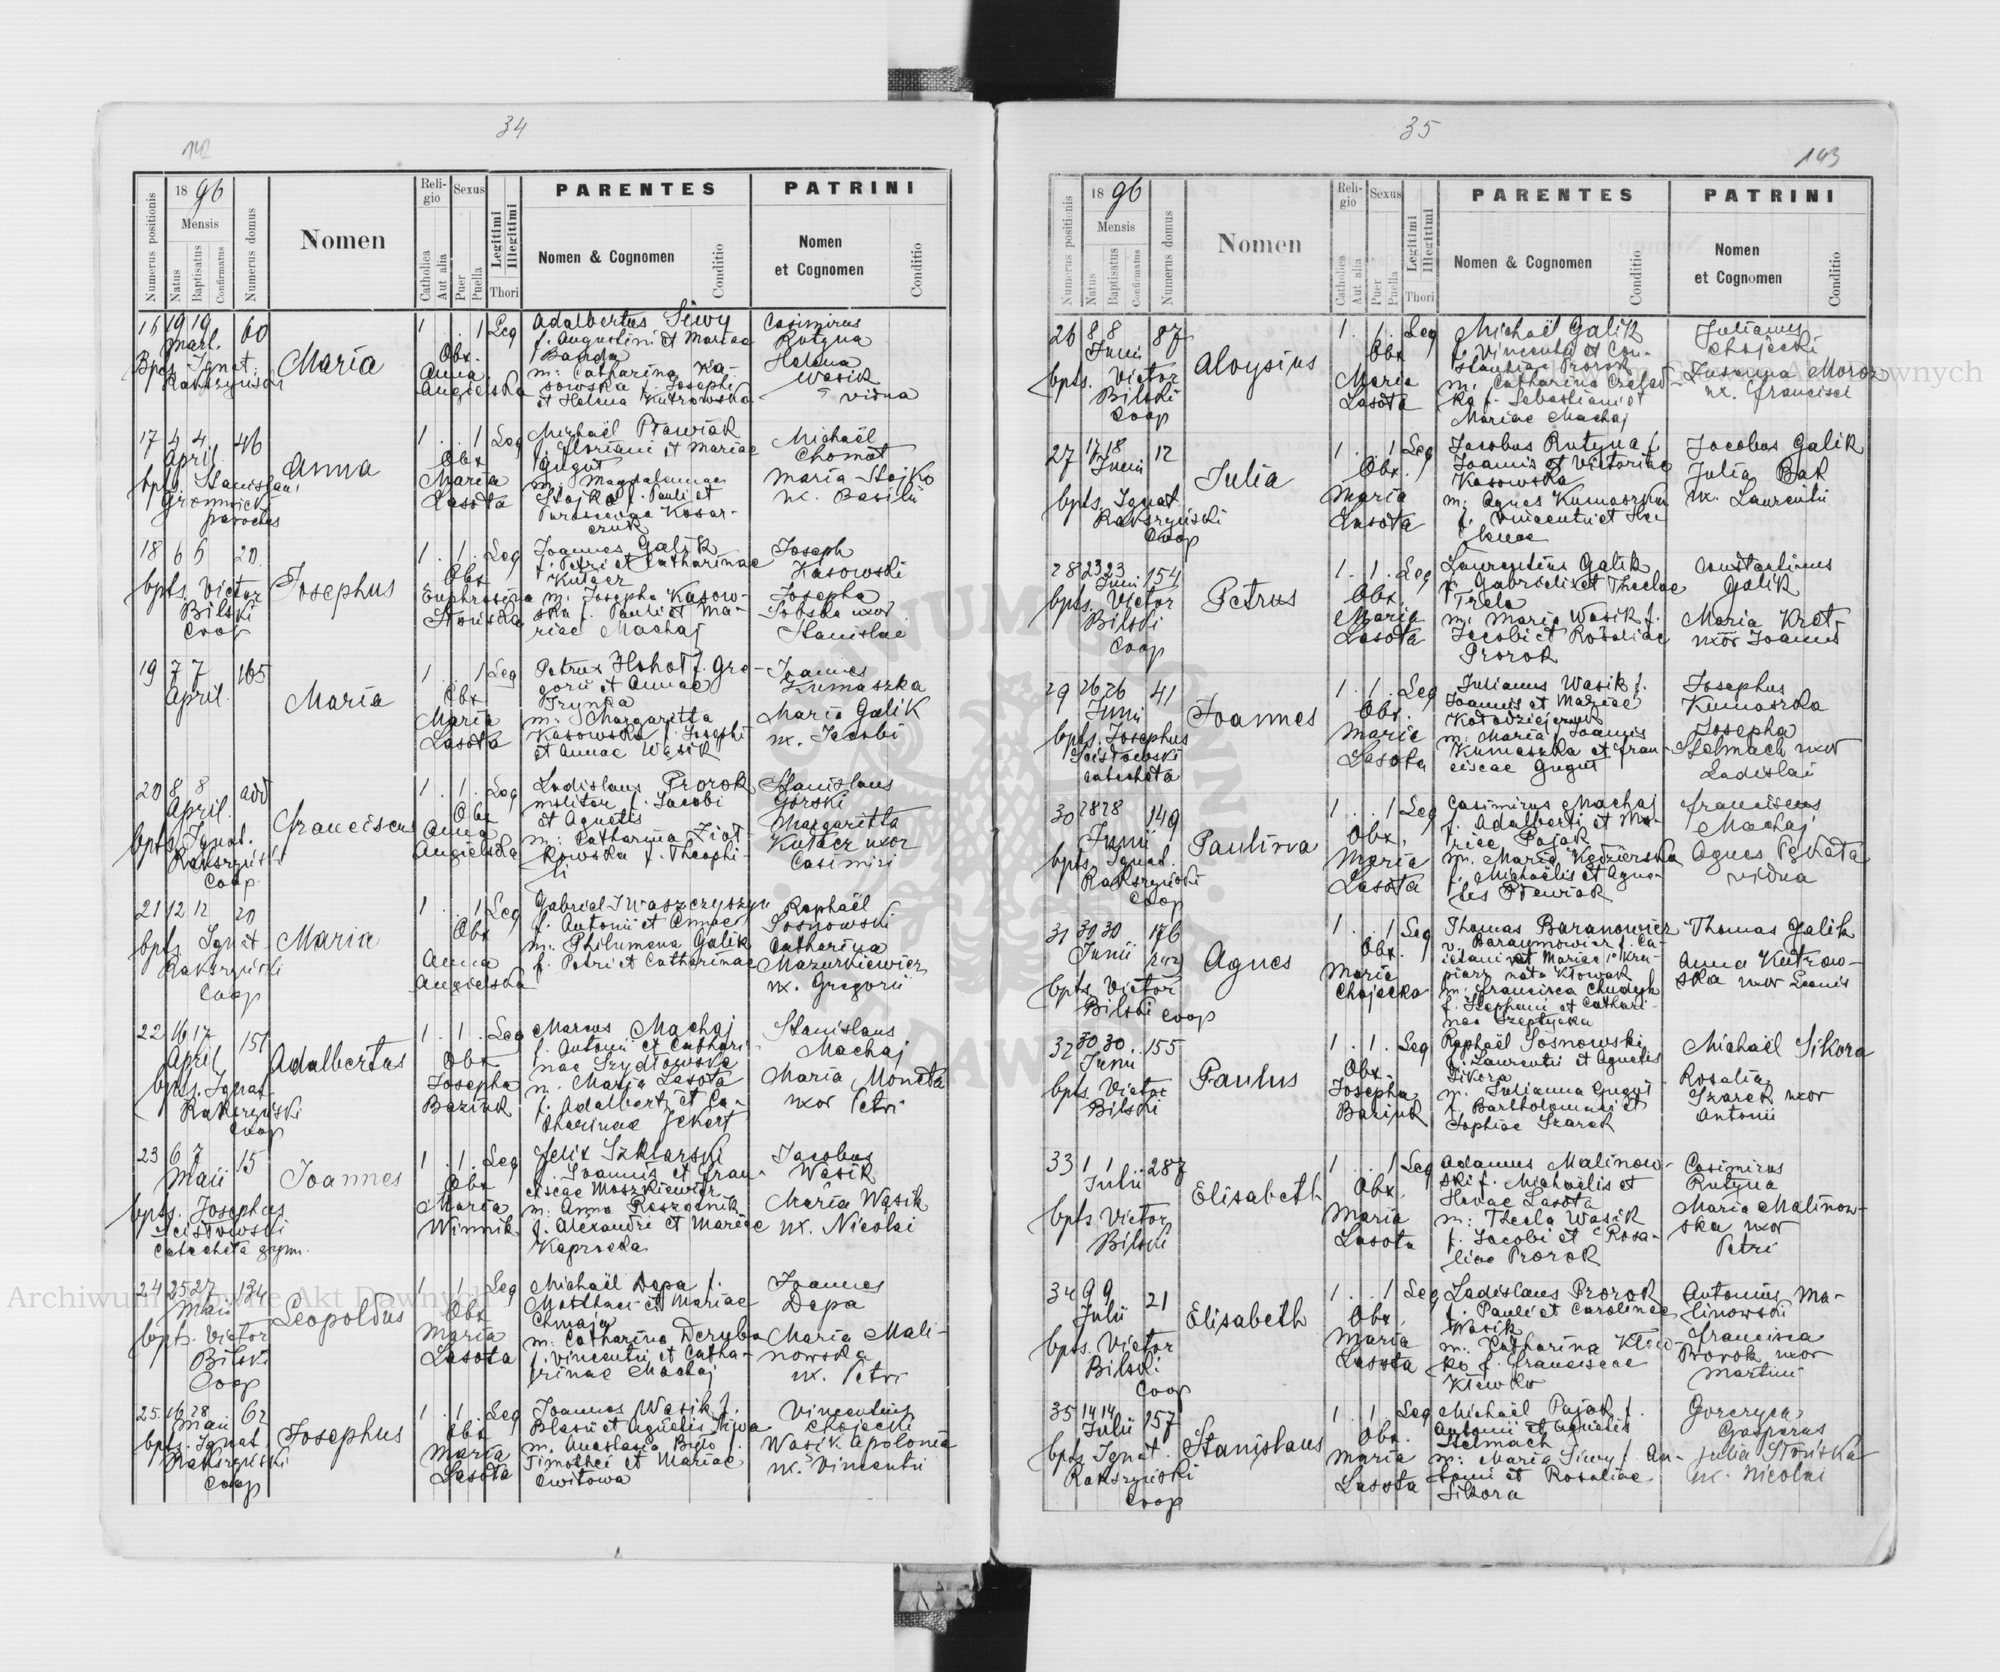 34
142
1896
Numerus positionis
Mensis
Natus
Baptisatus
Confirmatus
Numerus domus
Nomen
Religio
Catholica
Aut alia
Sexus
Puer
Puella
Legitimi
Illegitimi
Thori
PARENTES
Nomen & Cognomen
Conditio
PATRINI
Nomen
et Cognomen
Conditio
16 19 19 60 Maria 1 . . 1 Leg
Mart.
Bpts Ignat.
Rakszyński
Obx.
Anna
Angielska
Adalbertus Siwy
f. Augustini et Mariae
Banda
m: Catharina Ka-
sowska f. Josephi
et Helena Kutrowska
Casimirus
Rutyna
Helena
Wasik
vidua
17 4 4 46 Anna 1 . . 1 Leg
April
bpts. Stanislaus
Gromnicki
parochus
Obx
Maria
Lasota
Michaël Ptawiak
f. Floriani et Mariae
Gugut
m. Magdalena
Stojko f. Pauli et
Parascevae Kosar-
czuk
Michaël
Chomot
Maria Stojko
ux. Basilii
18 6 6 20 Josephus 1 . 1 . Leg
bpts. Victor
Bilski
Coop
Obx
Euphrosina
Stoniska
Joannes Galik
f. Petri et Catharinae
Kutacz
m. Josepha Kasow-
ska f. Pauli et Ma-
riae Machaj
Joseph
Kasowski
Josepha
Sobska uxor
Stanislai
19 7 7 165 Maria 1 . . 1 Leg
April.
Obx
Maria
Lasota
Petrus Hohot f. Gre-
gorii et Annae
Hrynka
m. Margaritta
Kasowska f. Josephi
et Annae Wasik
Joannes
Kumaszka
Maria Galik
ux. Jacobi
20 8 8 add Franciscus 1 . 1 . Leg
April.
bpts Ignat.
Rakszyński
Coop.
Obx
Anna
Angielska
Ladislaus Prorok
molitor f. Jacobi
et Agnetis
m: Catharina Ziot-
kowska f. Theophi-
li
Stanislaus
Górski
Margaritta
Kutacz uxor
Casimiri
21 12 12 20 Maria 1 . . 1 Leg
bpts Ignat
Rakszyński
Coop
Obx
Anna
Angielska
Gabriel Iwaszczyszyn
f. Antonii et Annae
m. Philumena Galik
f. Petri et Catharinae
Raphaël
Sosnowski
Catharina
Mazurkiewicz
ux. Gregorii
22 16 17 151 Adalbertus 1 . 1 . Leg
April
bpts. Ignat.
Rakszyński
Coop
Obx
Josepha
Baziuk
Marcus Machaj
f. Antonii et Cathari-
nae Szydłowska
m. Maria Lasota
f. Adalberti et Ca-
tharinae Jchert
Stanislaus
Machaj
Maria Moneta
uxor Petri
23 6 7 15 Joannes 1 . 1 . Leg
Maii
bpts. Josephus
Scisłowski
Catecheta gymn.
Obx
Maria
Winnik
Felix Szklarski
f. Joannis et Fran-
ciscae Moszkiewicz
m. Anna Raszotnik
f. Alexandri et Mariae
Kaprocka
Jacobus
Wasik
Maria Wąsik
ux. Nicolai
24 25 27 134 Leopoldus 1 1 Leg
Maii
bpts. Victor
Bilski
Coop
Obx
Maria
Lasota
Michaël Depa f.
Matthaei et Mariae
Chmaja
m. Catharina Deryba
f. Vincentii et Catha-
rinae Machaj
Joannes
Depa
Maria Mali-
nowska
ux. Petri
25. 16 28 62 Josephus 1 . 1 . Leg
Maii
bpts. Ignat.
Rakszyński
Coop
Obx
Maria
Lasota
Joannes Wasik f.
Blasii et Agnetis Siwa
m. Anastasia Biłło f.
Timothei et Mariae
Cwitowa
Vincentius
Chojecki
Wasik Apolonia
ux. Vincentii
35
143
1896
Numerus positionis
Mensis
Natus
Baptisatus
Confirmatus
Numerus domus
Nomen
Religio
Catholica
Aut alia
Sexus
Puer
Puella
Legitimi
Illegitimi
Thori
PARENTES
Nomen & Cognomen
Conditio
PATRINI
Nomen
et Cognomen
Conditio
26 8 8 87 Aloysius 1 . 1 . Leg
Junii
bpts. Victor
Bilski
Coop
Obx
Maria
Lasota
Michaël Galik
f. Vincentii et Con-
stantiae Prorok
m. Catharina
f. Sebastiani et
Mariae Machaj
Julianus
Chojecki
Zusanna Moroz
ux. Francisci
27 17 18 12 Julia 1 . . 1 Leg
Junii
bpts. Ignat
Rakszyński
Coop
Obx.
Maria
Lasota
Jacobus Rutyna f.
Joannis et Victoriae
Kasowska
m: Agnes Kumaszka
f. Vincentii et He-
lenae
Jacobus Galik
Julia Bak
ux. Laurentii
28 23 23 154 Petrus 1 . 1 . Leg
Junii
bpts. Victor
Bilski
Coop
Obx.
Maria
Lasota
Laurentius Galik
f. Gabrielis et Theclae
Trela
m. Maria Wasik f.
Jacobi et Rosaliae
Prorok
Constantinus
Galik
Maria Kret
uxor Joannis
29 26 26 41 Joannes 1 . 1 . Leg
Junii
bpts. Josephus
Scisłowski
catecheta
Obx.
Maria
Lasota
Julianus Wasik f.
Joannis et Mariae
Kołodziejczuk
m. Maria f. Joannis
Kumaszka et Fran-
ciscae Gugut
Josephus
Kumaszka
Josepha
Stelmach uxor
Ladislai
30 28 28 149 Paulina 1 . . 1 Leg
Junii
bpts. Ignat.
Rakszyński
Coop
Obx.
Maria
Lasota
Casimirus Machaj
f. Adalberti et Ma-
riae Pająk
m. Maria Kędzierska
f. Michaëlis et Agne-
tis Ptewiak
Franciscus
Machaj
Agnes
vidua
31 30 30 176 Agnes 1 . . 1 Leg
Junii
bpts. Victor
Bilski Coop
Obx.
Maria
Chojecka
Thomas Baranowicz
v. Baraymowicz f. Ca-
ietani et Mariae
nata Kłowak
m. Francisca Chudyk
f. Stephani et Cathari-
nae Szeptycka
Thomas Galik
Anna Kutrow-
ska uxor Leonis
32 30 30 155 Paulus 1 . 1 . Leg
Junii
bpts. Victor
Bilski
Obx.
Josepha
Baziuk
Raphaël Sosnowski
f. Laurentii et Agnetis
Sikora
m. Julianna Gugut
f. Bartholomaei et
Sophiae Szarek
Michaël Sikora
Rosalia
Szarek uxor
Antonii
33 1 1 287 Elisabeth 1 . . 1 Leg
Julii
bpts Victor
Bilski
Obx.
Maria
Lasota
Adamus Malinow-
ski f. Michaëlis et
Hevae Lasota
m: Thecla Wasik
f. Jacobi et Rosa-
liae Prorok
Casimirus
Rutyna
Maria Malinow-
ska uxor
Petri
34 9 9 21 Elisabeth 1 . . 1 Leg
Julii
bpts. Victor
Bilski
Coop
Obx.
Maria
Lasota
Ladislaus Prorok
f. Pauli et Carolinae
Wasik
m. Catharina Klów-
ko f. Franciscae
Klewko
Antonius Ma-
linowski
Francisca
Prorok uxor
Martini
35 14 14 157 Stanislaus 1 . 1 Leg
Julii
bpts Ignat.
Rakszyński
Coop
Obx.
Maria
Lasota
Michaël Pająk f.
Antonii et Agnetis
Stelmach
m. Maria Siwy f. An-
tonii et Rosaliae
Sikora
Gorczyca
Gasparus
Julia Stoniska
ux. Nicolai
Archiwum Główne Akt Dawnych
ARCHIWUM GŁÓWNE AKT DAWNYCH